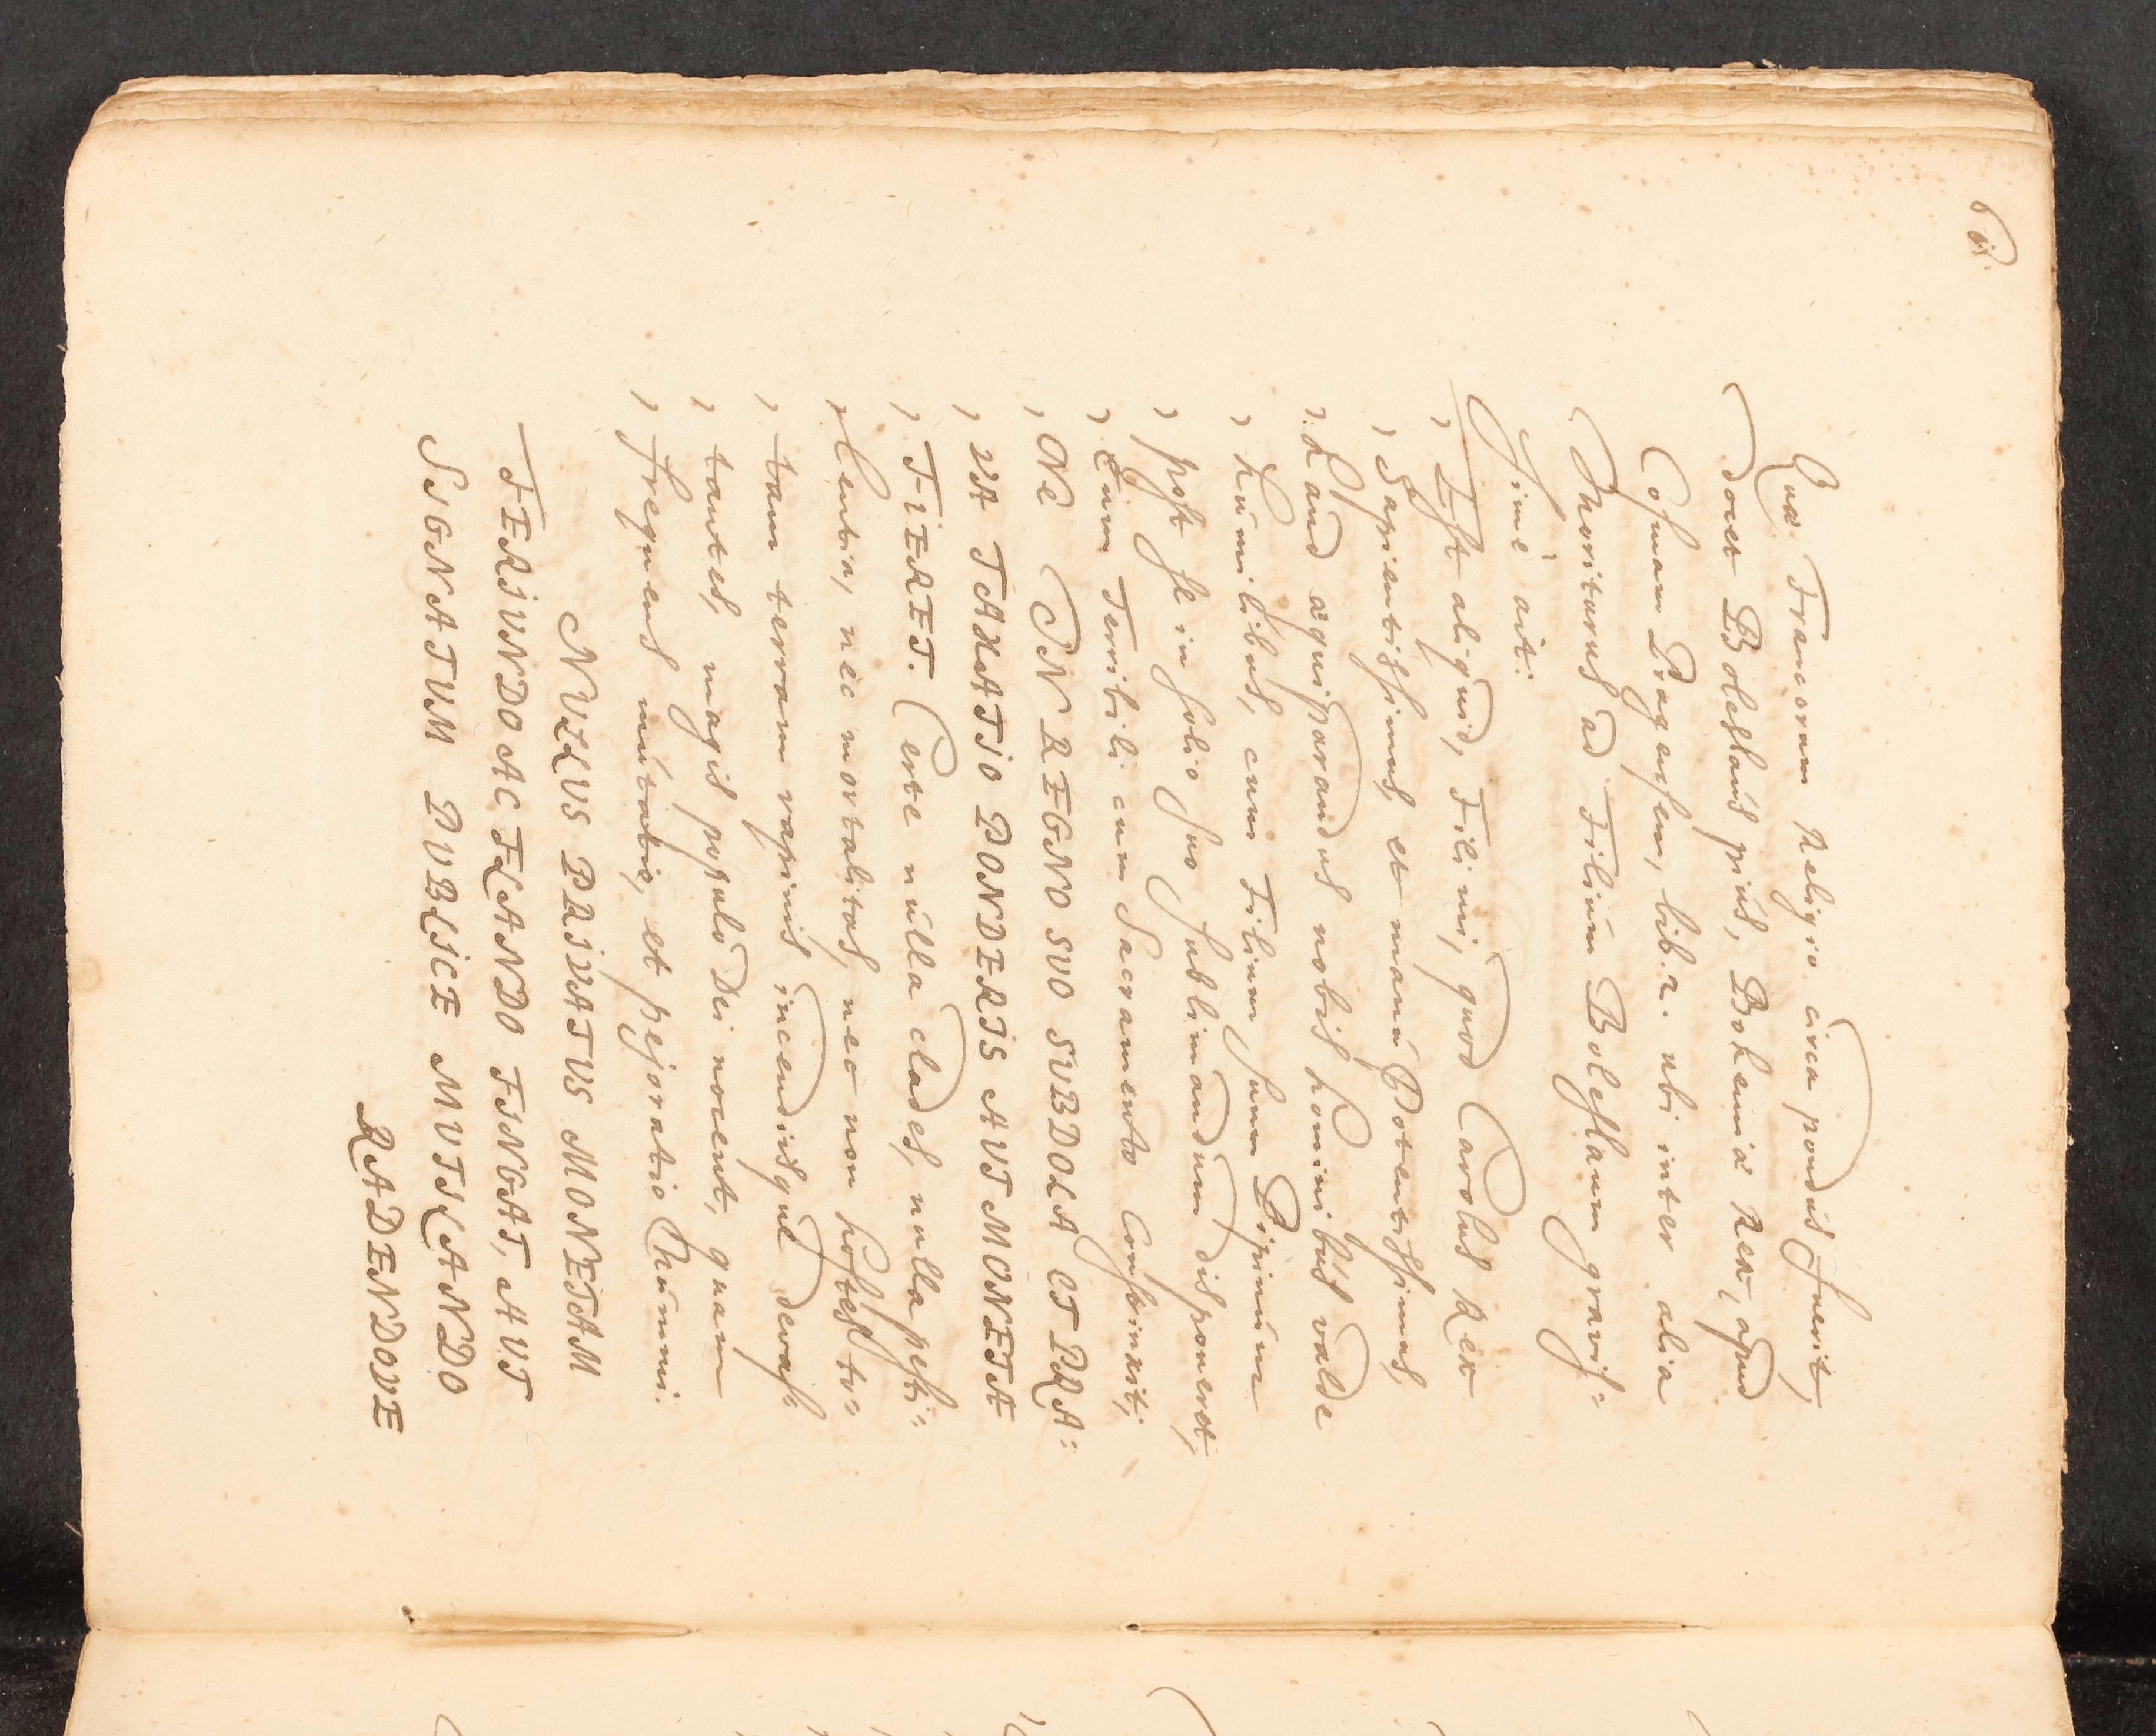 6 is.
Quæ Francorum Religio circa pondus fuerit,
docet Boleslaus pius, Bohemiæ Rex, apud
Cosmam Pragensem, lib. 2. ubi inter alia
Moriturus ad Filium Boleslaum gravis=
simè ait:
, Est aliquid, Fili mi, quod Carolus Rex
, Sapientissimus, et manu Potentissimus,
, Haud æquiparandus nobis hominibus valde
, humilibus, cum Filium suum Pipinum
, post se in solio suo sublimandum disponeret,
, Eum Terribili cum Sacramento constrinxit,
, NE IN REGNO SVO SVBDOLA ET PRA=
, VA TAXATIO PONDERIS AVT MONETA
, FIERET. Certe nulla clades, nulla pesti=
, lentia, nec mortalitas, nec non hostes to=
, tam terram rapinis incendiisque devas=
, tantes, magis populo Dei nocent, quam
, frequens mutatio, et pejoratio Nummi.
NVLLVS PRIVATVS MONETAM
FERIVNDO AC FLANDO FINGAT, AVT
SIGNATVM PVBLICE MVTILANDO
RADENDOVE